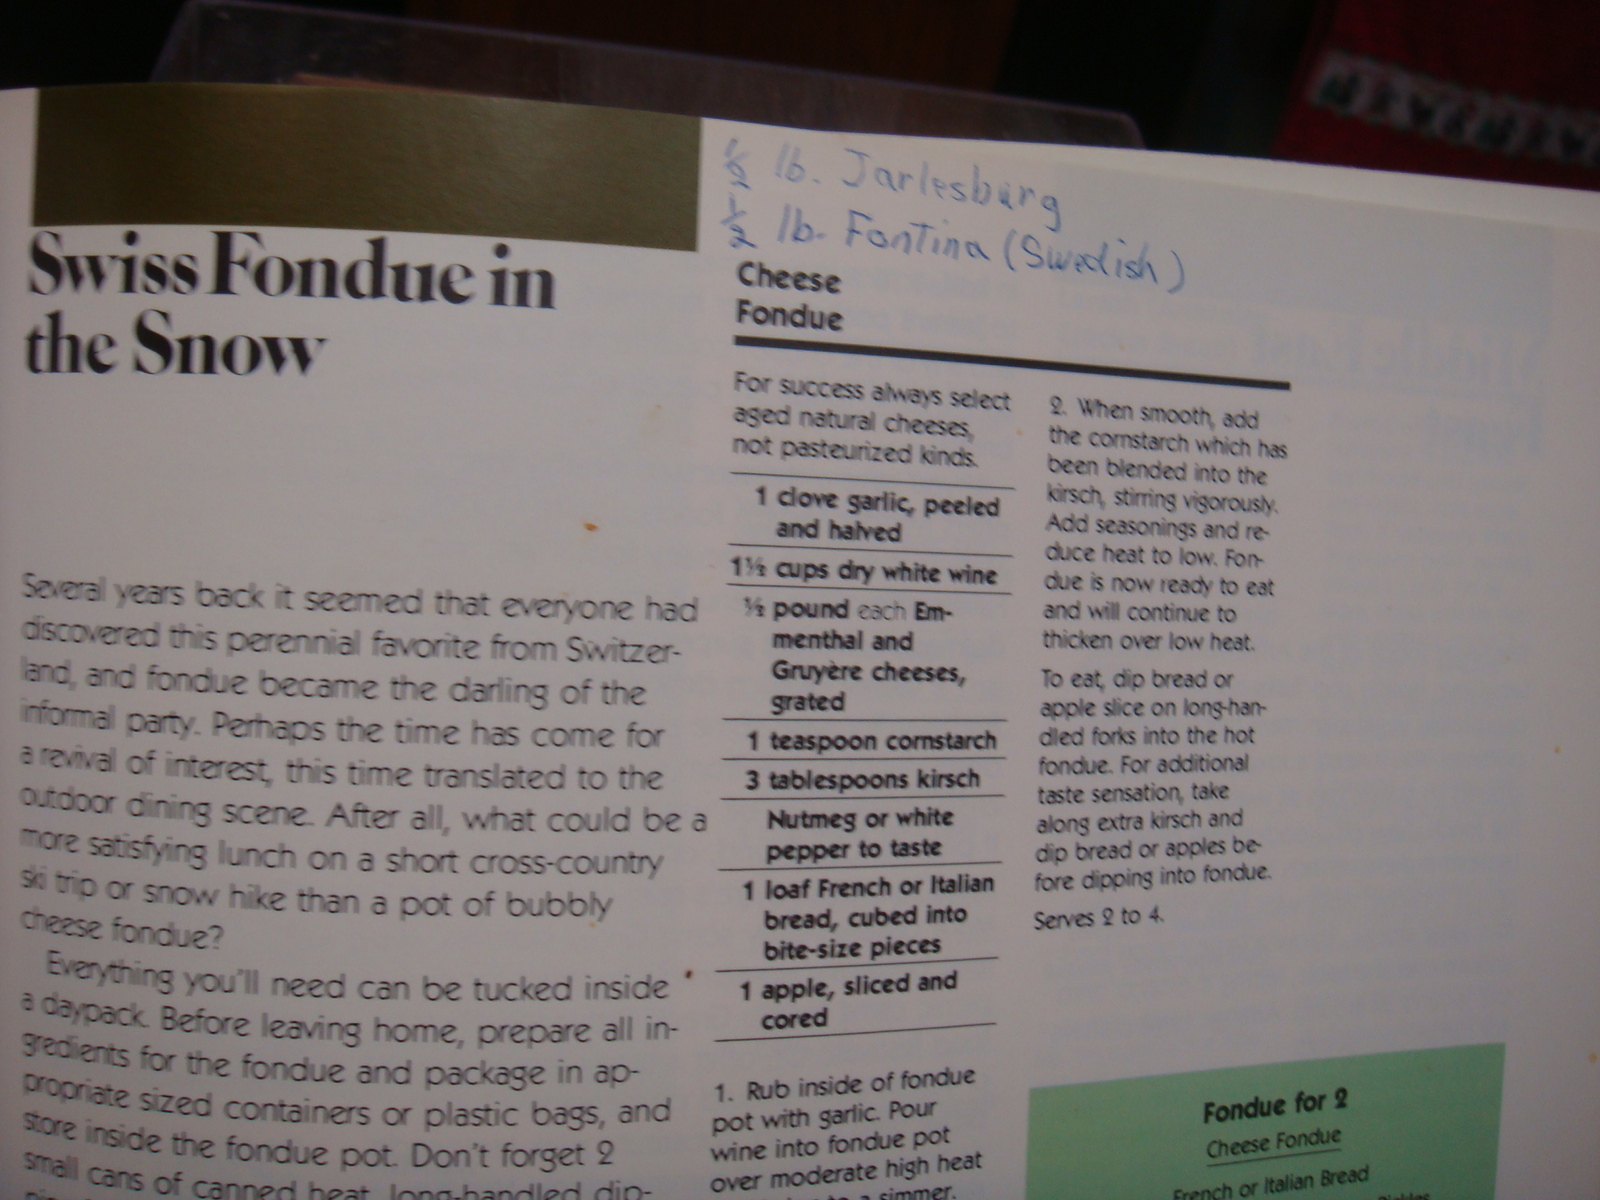 Swiss Fondue in
the Snow
Several years back it seemed that everyone had
discovered this perennial favorite from Switzer-
land, and fondue became the darling of the
informal party. Perhaps the time has come for
a revival of interest, this time translated to the
outdoor dining scene. After all, what could be a
more satisfying lunch on a short cross-country
ski trip or snow hike than a pot of bubbly
cheese fondue?
Everything you'll need can be tucked inside
a daypack. Before leaving home, prepare all in-
gredients for the fondue and package in ap-
propriate sized containers or plastic bags, and
store inside the fondue pot. Don't forget 2
small cans of canned heat, long-handled dip-
½ lb. Jarlesburg
½ lb. Fontina (Swedish)
Cheese
Fondue
For success always select
aged natural cheeses,
not pasteurized kinds.
1 clove garlic, peeled
and halved
1½ cups dry white wine
½ pound each Em-
menthal and
Gruyère cheeses,
grated
1 teaspoon cornstarch
3 tablespoons kirsch
Nutmeg or white
pepper to taste
1 loaf French or Italian
bread, cubed into
bite-size pieces
1 apple, sliced and
cored
1. Rub inside of fondue
pot with garlic. Pour
wine into fondue pot
over moderate high heat
a simmer.
2. When smooth, add
the cornstarch which has
been blended into the
kirsch, stirring vigorously.
Add seasonings and re-
duce heat to low. Fon-
due is now ready to eat
and will continue to
thicken over low heat.
To eat, dip bread or
apple slice on long-han-
dled forks into the hot
fondue. For additional
taste sensation, take
along extra kirsch and
dip bread or apples be-
fore dipping into fondue.
Serves 2 to 4.
Fondue for 2
Cheese Fondue
French or Italian Bread